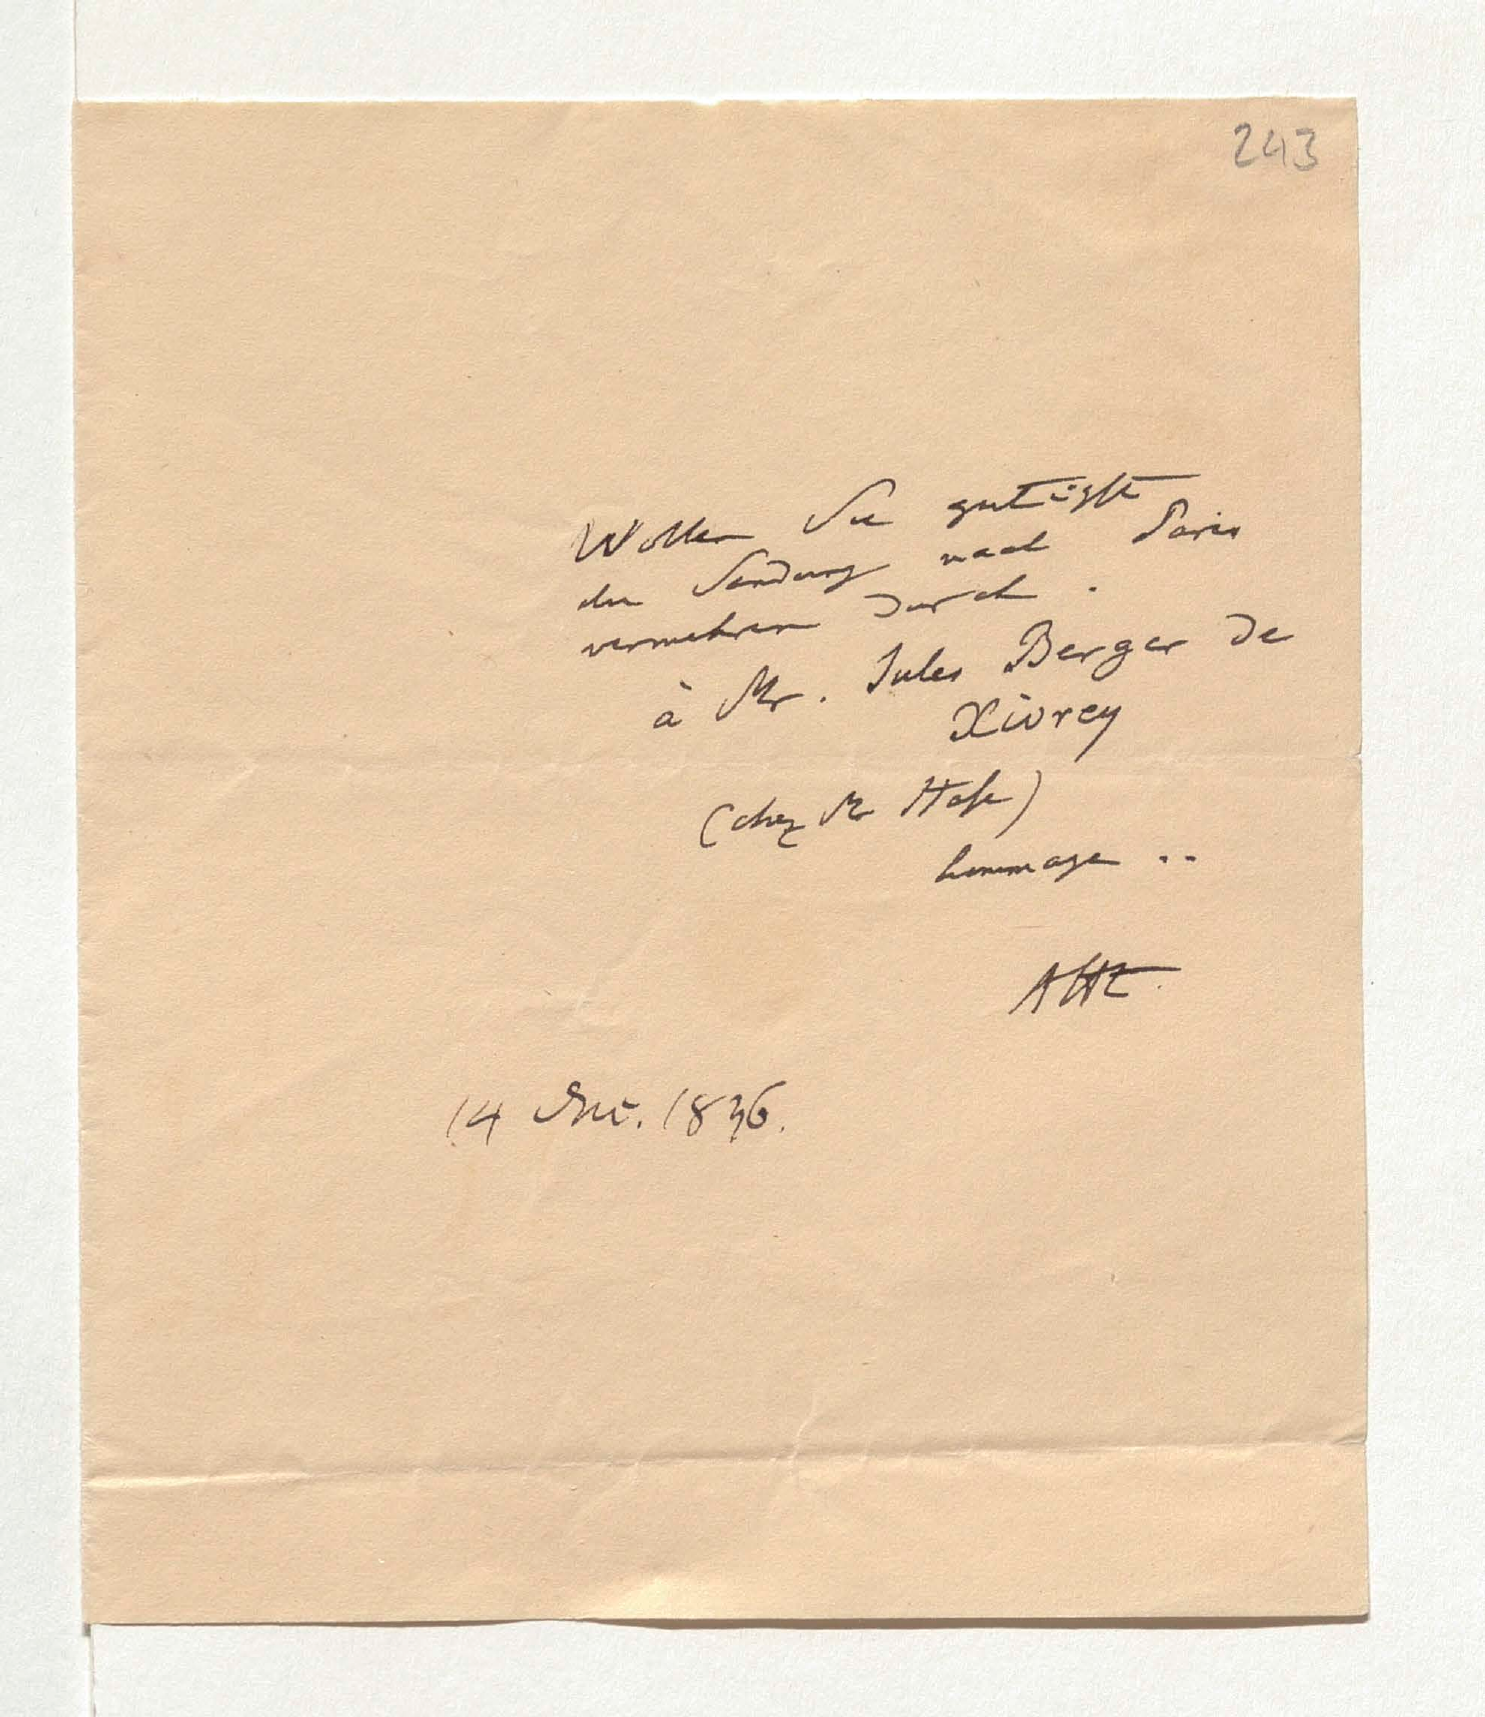 243
Wollen Sie gütigst
die Sendung nach Paris
vermehren durch .
à Mr. Jules Berger de
Xivrey
(chez Mr Hase)
hommage ..
AHt.
14 Dec. 1836.